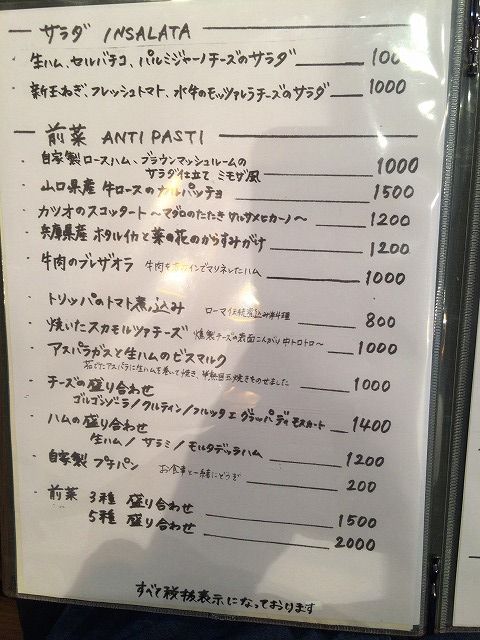 サラダ INSALATA
・生ハム、セルバチコ、パルミジャーノチーズのサラダ 100
・新玉ねぎ、フレッシュトマト、水牛のモッツァレラチーズのサラダ 1000
前菜 ANTIPASTI
・自家製ロースハム、ブラウンマッシュルームの
サラダ仕立て ミモザ風 1000
・山口県産 牛ロースのカルパッチョ 1500
・カツオのスコッタート 〜マグロのたたき サルサメヒカーノ〜 1200
・兵庫県産 ホタルイカと菜の花のからすみがけ 1200
・牛肉のブレザオラ 牛肉を赤ワインでマリネしたハム 1000
・トリッパのトマト煮込み ローマ伝統煮込み料理 800
・焼いたスカモルツァチーズ 燻製チーズの表面こんがり中トロトロ〜 1000
・アスパラガスと生ハムのビスマルク
アスパラに生ハムを巻いて焼き、半熟目玉焼きをのせました 1000
・チーズの盛り合わせ
ゴルゴンゾーラ/クルティン/フォルマッジョ グラッパ ディ モスカート 1400
・ハムの盛り合わせ
生ハム/サラミ/モルタデッラハム 1200
・自家製 プチパン お食事と一緒にどうぞ 200
・前菜 3種 盛り合わせ 1500
5種 盛り合わせ 2000
すべて税抜表示になっております